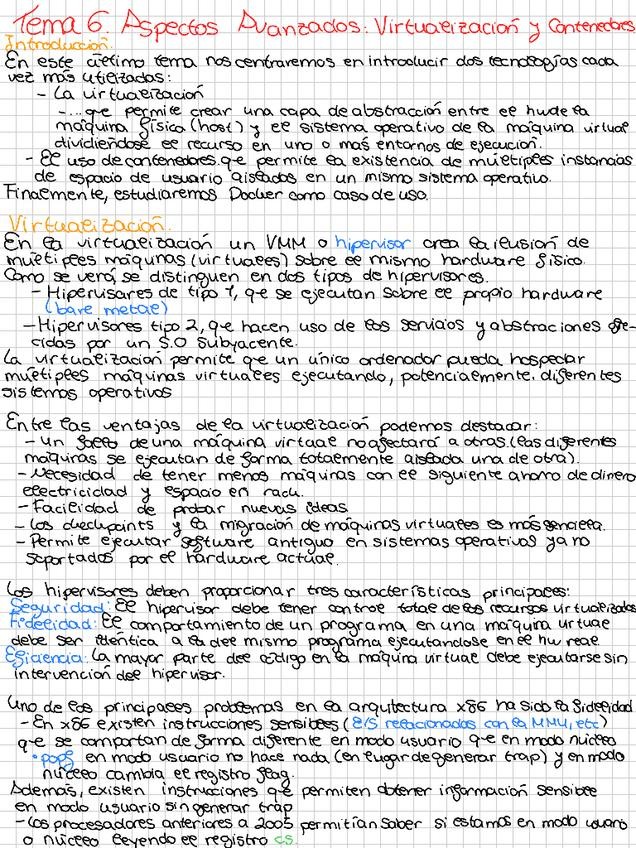 Tema 6. Aspectos Avanzados: Virtualización y Contenedores
Introducción.
En este último tema nos centraremos en introducir dos tecnologías cada
vez más utilizadas:
- La virtualización
-... que permite crear una capa de abstracción entre el hw de la
máquina física (host) y el sistema operativo de la máquina virtual
dividiéndose el recurso en uno o más entornos de ejecución.
- El uso de contenedores que permite la existencia de múltiples instancias
de espacio de usuario aislados en un mismo sistema operativo.
Finalmente, estudiaremos Docker como caso de uso.
Virtualización.
En la virtualización un VMM o hipervisor crea la ilusión de
múltiples máquinas (virtuales) sobre el mismo hardware físico.
Como se verá, se distinguen en dos tipos de hipervisores.
- Hipervisores de tipo 1, que se ejecutan sobre el propio hardware
(bare metal)
- Hipervisores tipo 2, que hacen uso de los servicios y abstracciones ofre-
cidas por un S.O subyacente.
La virtualización permite que un único ordenador pueda hospedar
múltiples máquinas virtuales ejecutando, potencialmente. diferentes
sistemas operativos
Entre las ventajas de la virtualización podemos destacar:
- Un fallo de una máquina virtual no afectará a otras. (las diferentes
máquinas se ejecutan de forma totalmente aislada una de otra).
- Necesidad de tener menos máquinas con el siguiente ahorro de dinero
electricidad y espacio en rack.
- Facilidad de probar nuevas ideas
- Los checkpoints y la migración de máquinas virtuales es más sencilla.
- Permite ejecutar software antiguo en sistemas operativos ya no
soportados por el hardware actual.
Los hipervisores deben proporcionar tres características principales:
Seguridad: El hipervisor debe tener control total de los recursos virtualizados
Fidelidad: El comportamiento de un programa en una máquina virtual
debe ser idéntica a la del mismo programa ejecutandose en el hw real.
Eficiencia: La mayor parte del código en la máquina virtual debe ejecutarse sin
intervención del hipervisor.
Uno de los principales problemas en la arquitectura x86 ha sido la fidelidad
- En x86 existen instrucciones sensibles (E/S relacionados con la MMU, etc)
que se comportan de forma diferente en modo usuario que en modo núcleo
• popf en modo usuario no hace nada (en lugar de generar trap) y en modo
núcleo cambia el registro flag.
Además, existen instrucciones que permiten obtener información sensible
en modo usuario sin generar trap
- Los procesadores anteriores a 2005 permitían saber si estamos en modo usuario
o núcleo leyendo el registro cs.